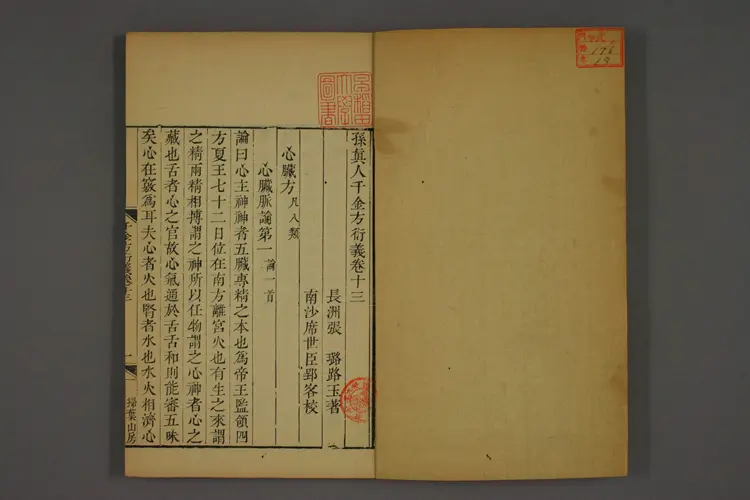 孫真人千金方衍義卷十三
長洲張 璐路玉著
南沙席世臣郢客校
心臟方 凡八類
心臟脈論第一 論一首
論曰心主神神者五臟專精之本也為帝王監領四
方夏王七十二日位在南方離宮火也有生之來謂
之精兩精相搏謂之神所以任物謂之心神者心之
藏也舌者心之官故心氣通於舌舌和則能審五味
矣心在竅為耳夫心者火也腎者水也水火相濟心
千金方衍義卷十三
一
掃葉山房
早稻田大學圖書
196
19